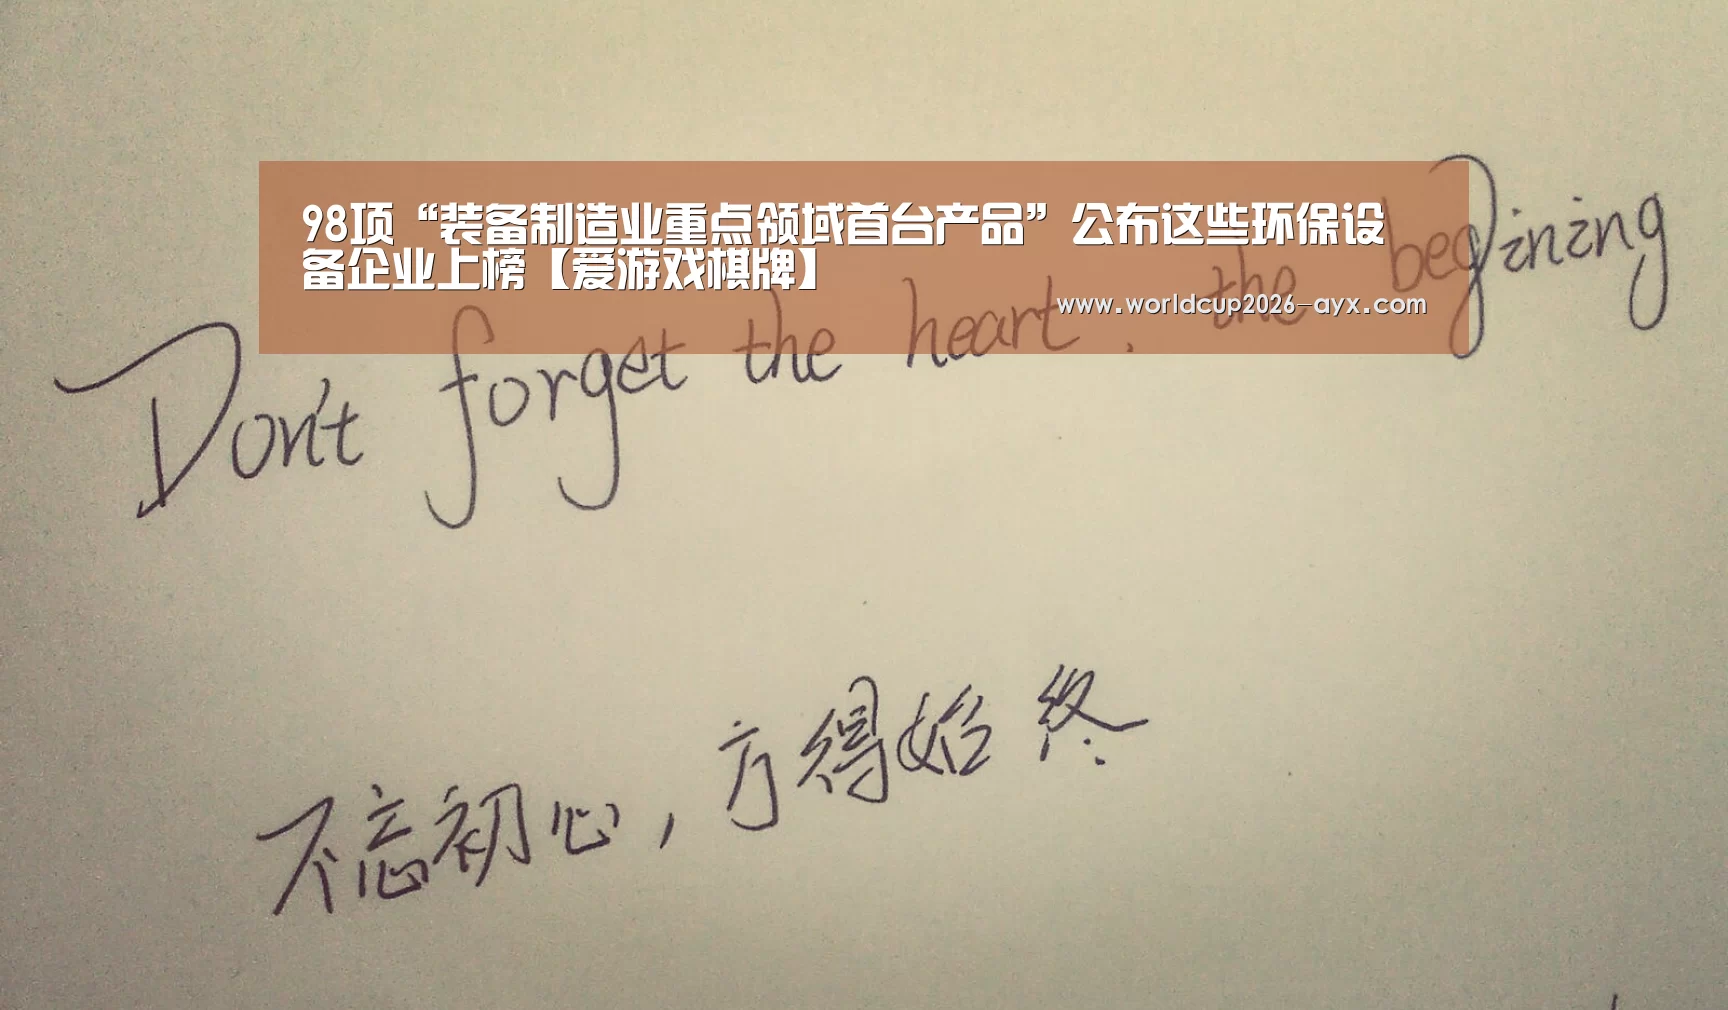 98项“装备制造业重点领域首台产品”公布这些环保设
备企业上榜【爱游戏棋牌】
www.worldcup2026-ayx.com
Don't forget the heart. the begining
不忘初心，方得始终